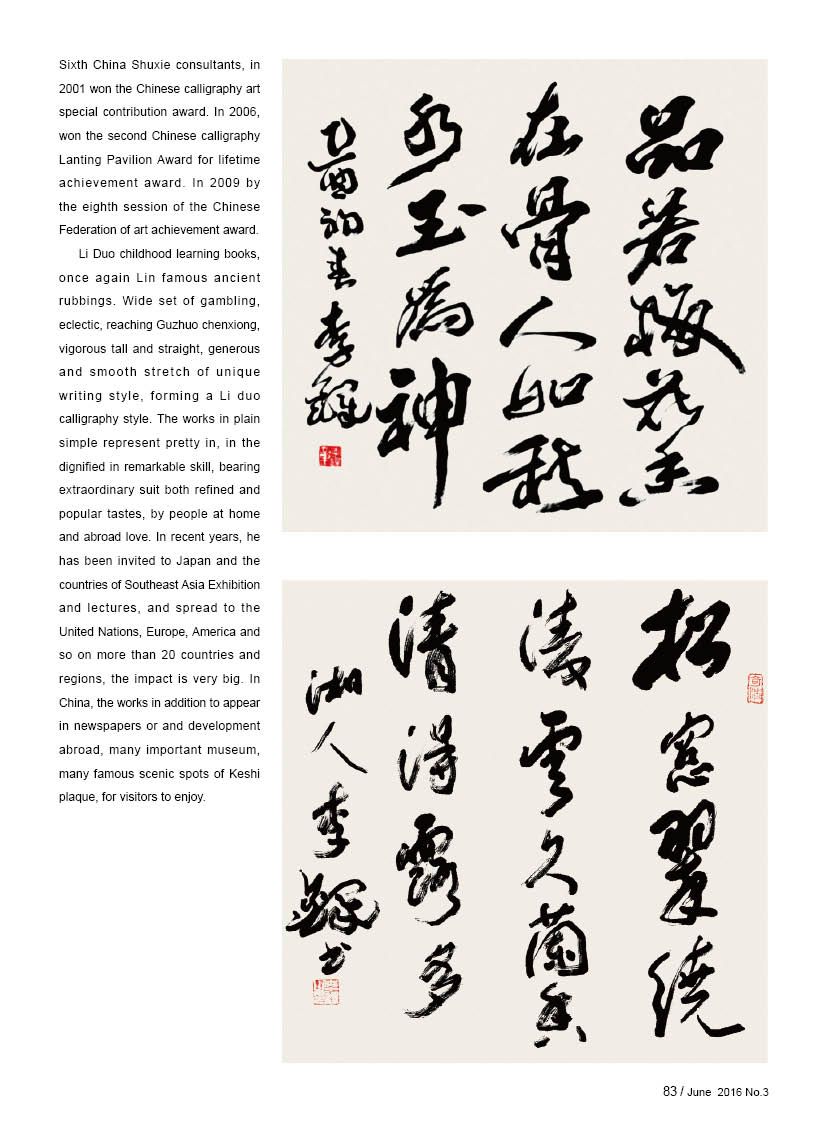 Sixth China Shuxie consultants, in
2001 won the Chinese calligraphy art
special contribution award. In 2006,
won the second Chinese calligraphy
Lanting Pavilion Award for lifetime
achievement award. In 2009 by
the eighth session of the Chinese
Federation of art achievement award.
Li Duo childhood learning books,
once again Lin famous ancient
rubbings. Wide set of gambling,
eclectic, reaching Guzhuo chenxiong,
vigorous tall and straight, generous
and smooth stretch of unique
writing style, forming a Li duo
calligraphy style. The works in plain
simple represent pretty in, in the
dignified in remarkable skill, bearing
extraordinary suit both refined and
popular tastes, by people at home
and abroad love. In recent years, he
has been invited to Japan and the
countries of Southeast Asia Exhibition
and lectures, and spread to the
United Nations, Europe, America and
so on more than 20 countries and
regions, the impact is very big. In
China, the works in addition to appear
in newspapers or and development
abroad, many important museum,
many famous scenic spots of Keshi
plaque, for visitors to enjoy.
品若梅花香
在骨人如秋
水玉為神
乙酉初春 李鐸
松窓翠繞
淩雲久蘭香
清得露多
湘人李鐸书
83 / June 2016 No.3